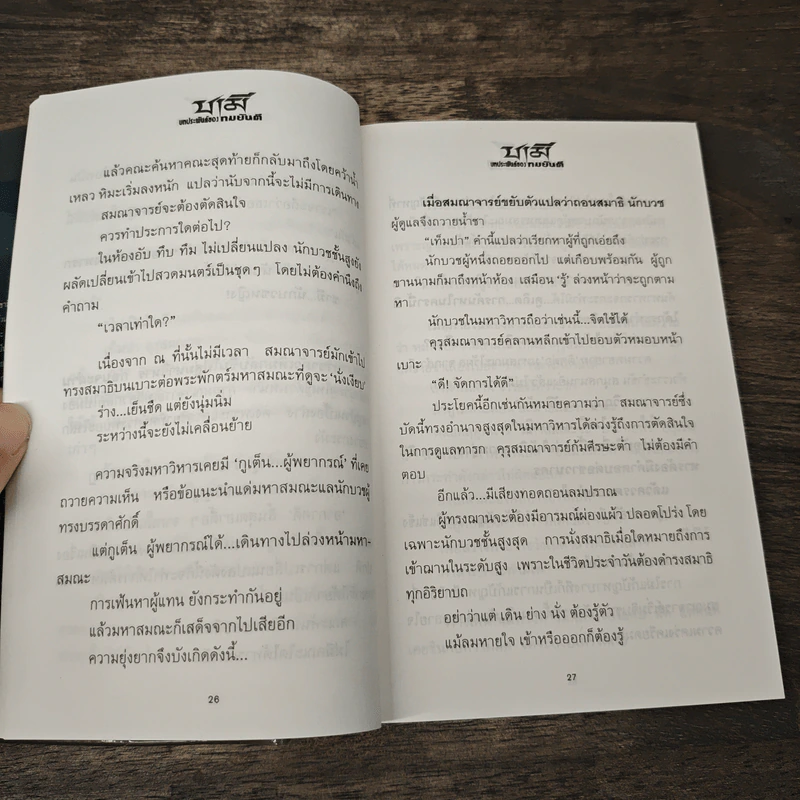 ขามี
บทประพันธ์ของ ทมยันตี
แล้วคณะค้นหาคณะสุดท้ายก็กลับมาถึงโดยคว้าน้ำ
เหลว หิมะเริ่มลงหนัก แปลว่านับจากนี้จะไม่มีการเดินทาง
สมณาจารย์จะต้องตัดสินใจ
ควรทำประการใดต่อไป?
ในห้องอับ ทึบ ทึม ไม่เปลี่ยนแปลง นักบวชชั้นสูงยัง
ผลัดเปลี่ยนเข้าไปสวดมนตร์เป็นชุดๆ โดยไม่ต้องคำนึงถึง
คำถาม
“เวลาเท่าใด?”
เนื่องจาก ณ ที่นั้นไม่มีเวลา สมณาจารย์มักเข้าไป
ทรงสมาธิบนเบาะต่อพระพักตร์มหาสมณะที่ดูจะ ‘นั่งเงียบ’
ร่าง...เย็นชืด แต่ยังนุ่มนิ่ม
ระหว่างนี้จะยังไม่เคลื่อนย้าย
ความจริงมหาวิหารเคยมี ‘กูเต็น...ผู้พยากรณ์’ ที่เคย
ถวายความเห็น หรือข้อแนะนำแด่มหาสมณะแลนักบวชผู้
ทรงบรรดาศักดิ์
แต่กูเต็น ผู้พยากรณ์ได้...เดินทางไปล่วงหน้ามหา-
สมณะ
การเฟ้นหาผู้แทน ยังกระทำกันอยู่
แล้วมหาสมณะก็เสด็จจากไปเสียอีก
ความยุ่งยากจึงบังเกิดดังนี้...
26
บทประพันธ์ของ ทมยันตี
เมื่อสมณาจารย์ขยับตัวแปลว่าถอนสมาธิ นักบวช
ผู้ดูแลจึงถวายน้ำชา
“เท็มปา” คำนี้แปลว่าเรียกหาผู้ที่ถูกเอ่ยถึง
นักบวชผู้หนึ่งถอยออกไป แต่เกือบพร้อมกัน ผู้ถูก
ขานนามก็มาถึงหน้าห้อง เสมือน ‘รู้’ ล่วงหน้าว่าจะถูกตาม
หา
นักบวชในมหาวิหารถือว่าเช่นนี้...จิตใช้ได้
คุรุสมณาจารย์คิลานหลีกเข้าไปยอบตัวหมอบหน้า
เบาะ
“ดี! จัดการได้ดี”
ประโยคนี้อีกเช่นกันหมายความว่า สมณาจารย์ซึ่ง
บัดนี้ทรงอำนาจสูงสุดในมหาวิหารได้ล่วงรู้ถึงการตัดสินใจ
ในการดูแลทารก คุรุสมณาจารย์ก้มศีรษะต่ำ ไม่ต้องมีคำ
ตอบ
อีกแล้ว...มีเสียงทอดถอนลมปราณ
ผู้ทรงฌานจะต้องมีอารมณ์ผ่องแผ้ว ปลอดโปร่ง โดย
เฉพาะนักบวชชั้นสูงสุด การนั่งสมาธิเมื่อใดหมายถึงการ
เข้าฌานในระดับสูง เพราะในชีวิตประจำวันต้องดำรงสมาธิ
ทุกอิริยาบถ
อย่าว่าแต่ เดิน ย่าง นั่ง ต้องรู้ตัว
แม้ลมหายใจ เข้าหรือออกก็ต้องรู้
27